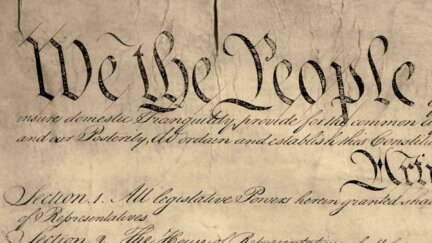 We the People
insure domestic Tranquility, provide for the common
and our Posterity, do ordain and establish this
Section. 1. All legislative Powers herein granted
of Representatives.
Section. 2. The House of Representatives